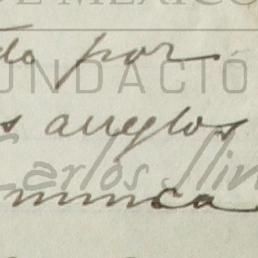 DE MÉXICO
do por
FUNDACIÓ
s anglos
Carlos Slim
nunca